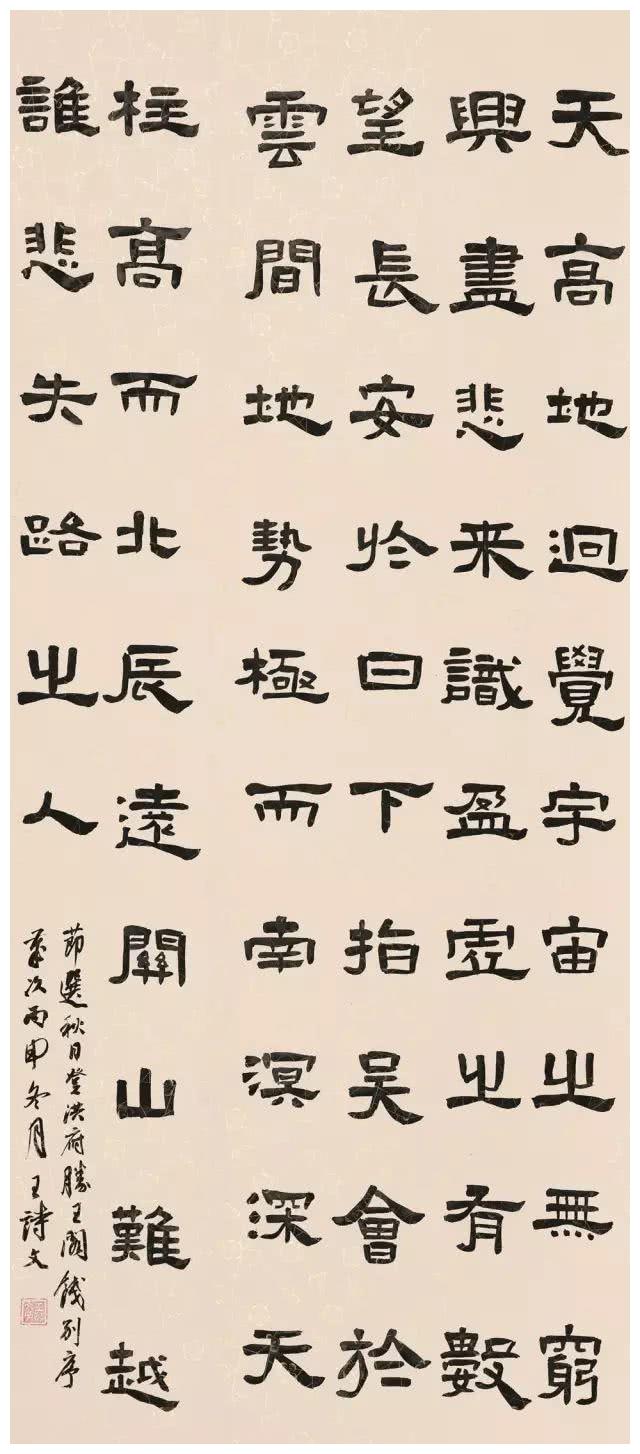 天高地迥覺宇宙之無窮
興盡悲来識盈虛之有數
望長安於日下指吴會於
雲間地勢極而南溟深天
柱高而北辰遠關山難越
誰悲失路之人
節選秋日登洪府滕王閣餞别序
歲次丙申冬月王詩文